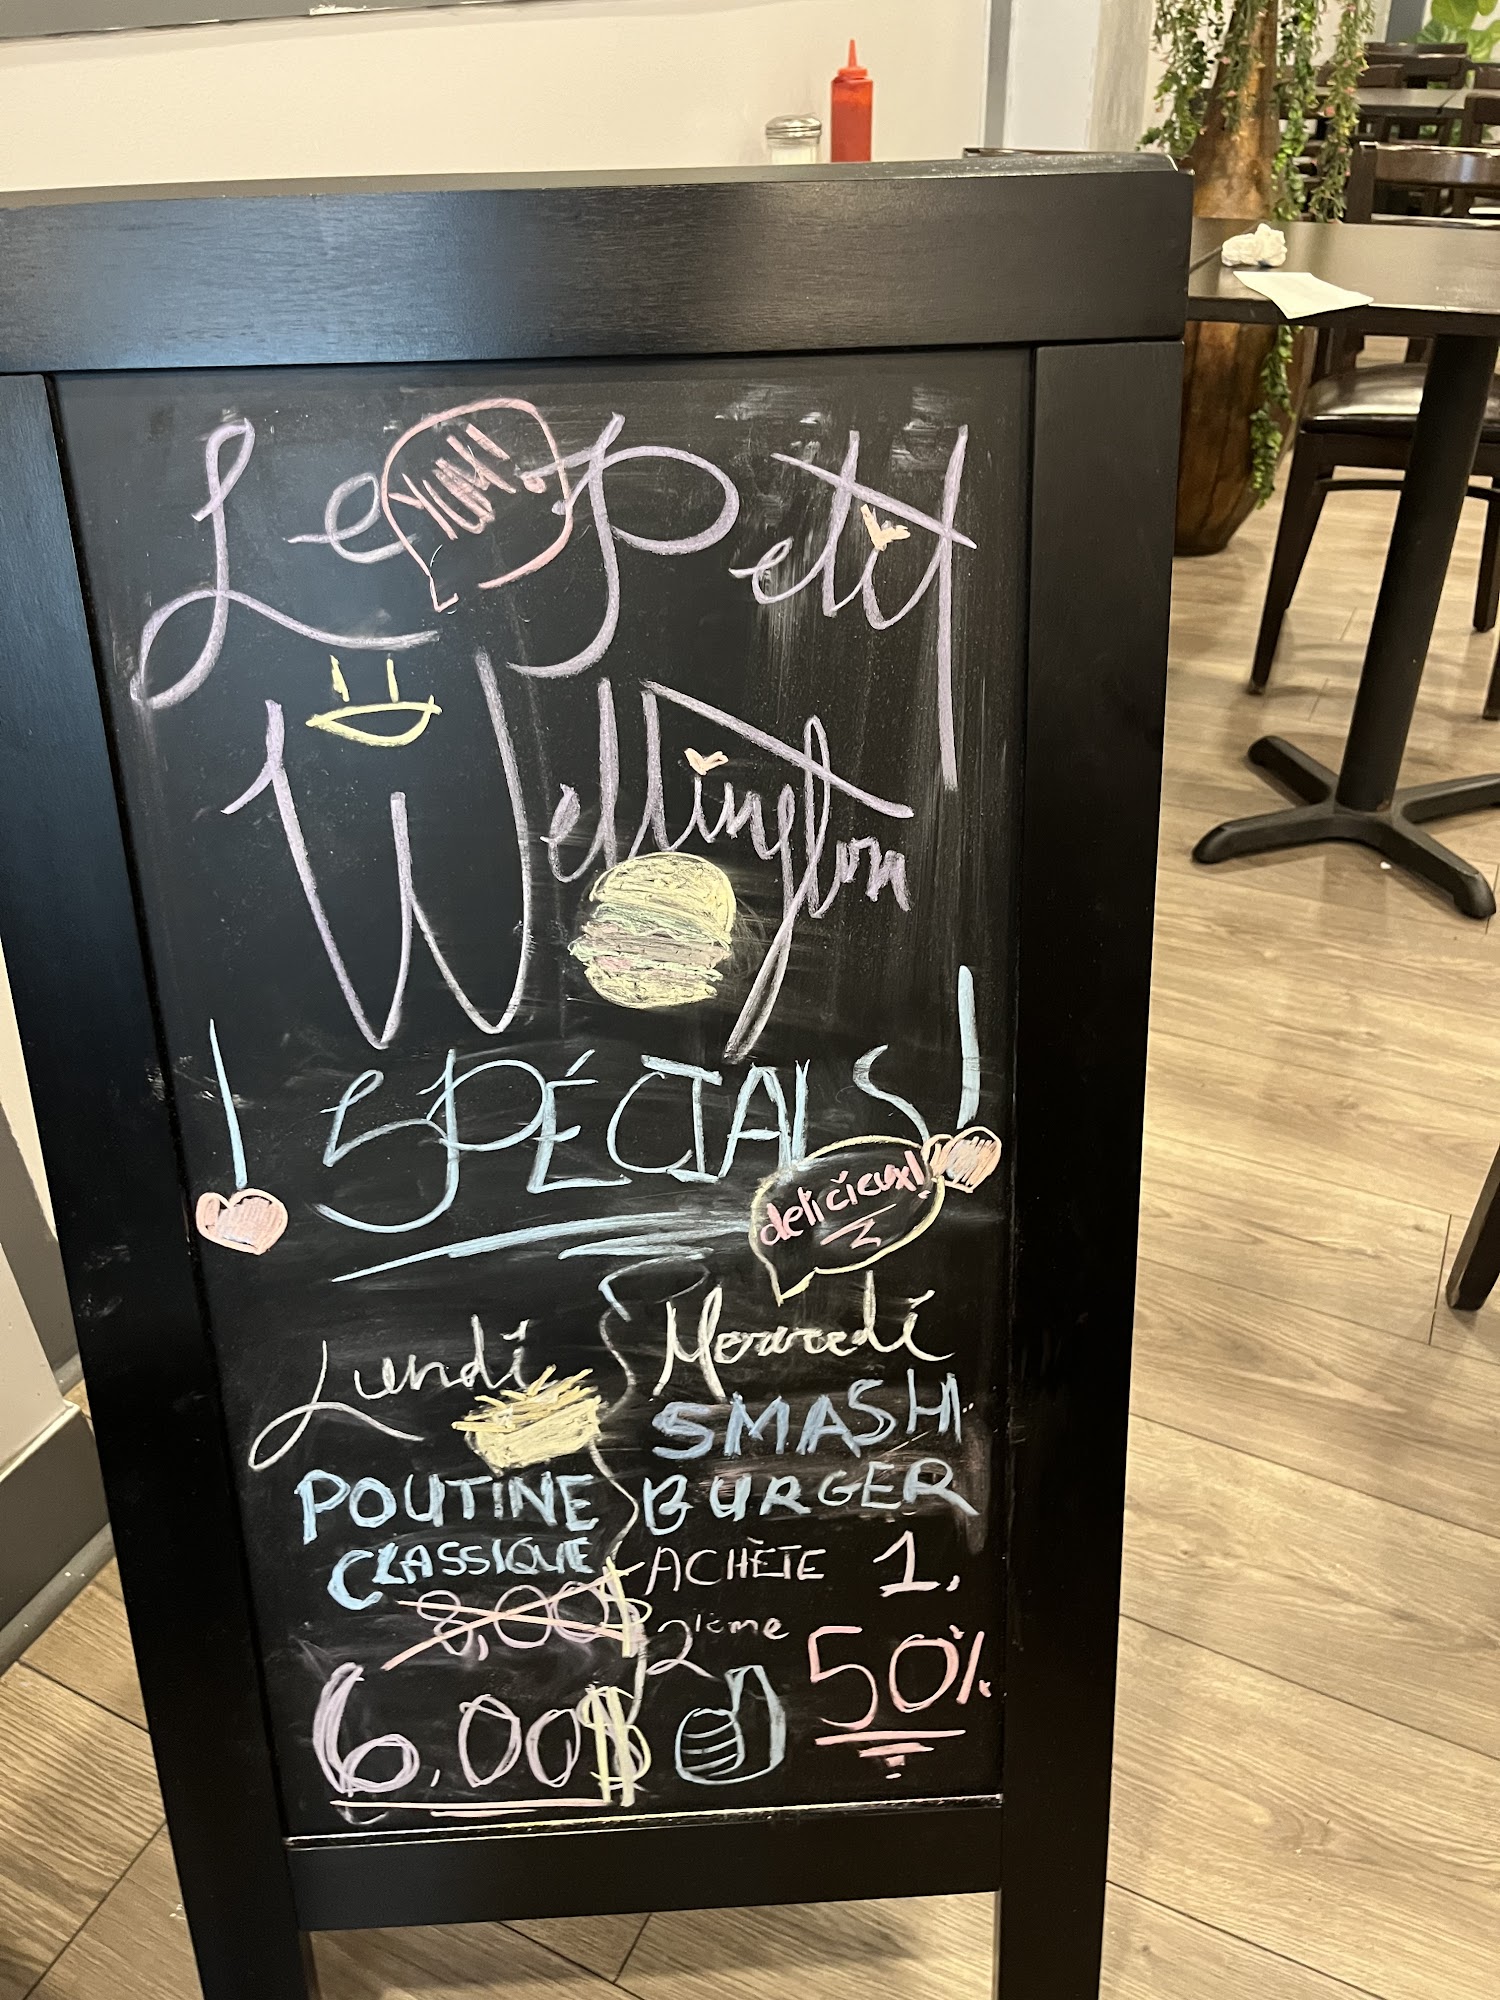 Le Petit
YUM!
Wellington
! SPÉCIALS !
delicieux!
Lundi
POUTINE
CLASSIQUE
8,00$
6,00$
Mercredi
SMASH
BURGER
ACHÈTE 1,
2ième 50%